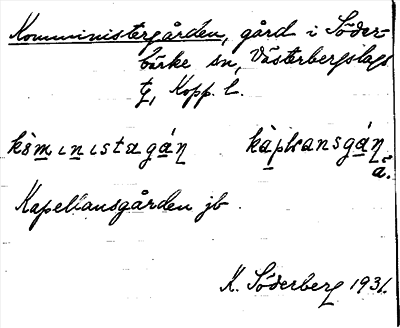 Komministergården, gård i Söder-
bärke sn, Västerbergslags
tg, Kopp. l.
kòmınıstagáɳ kàplansgáɳ
ä.
Kapellansgården jb.
K. Söderberg 1931.